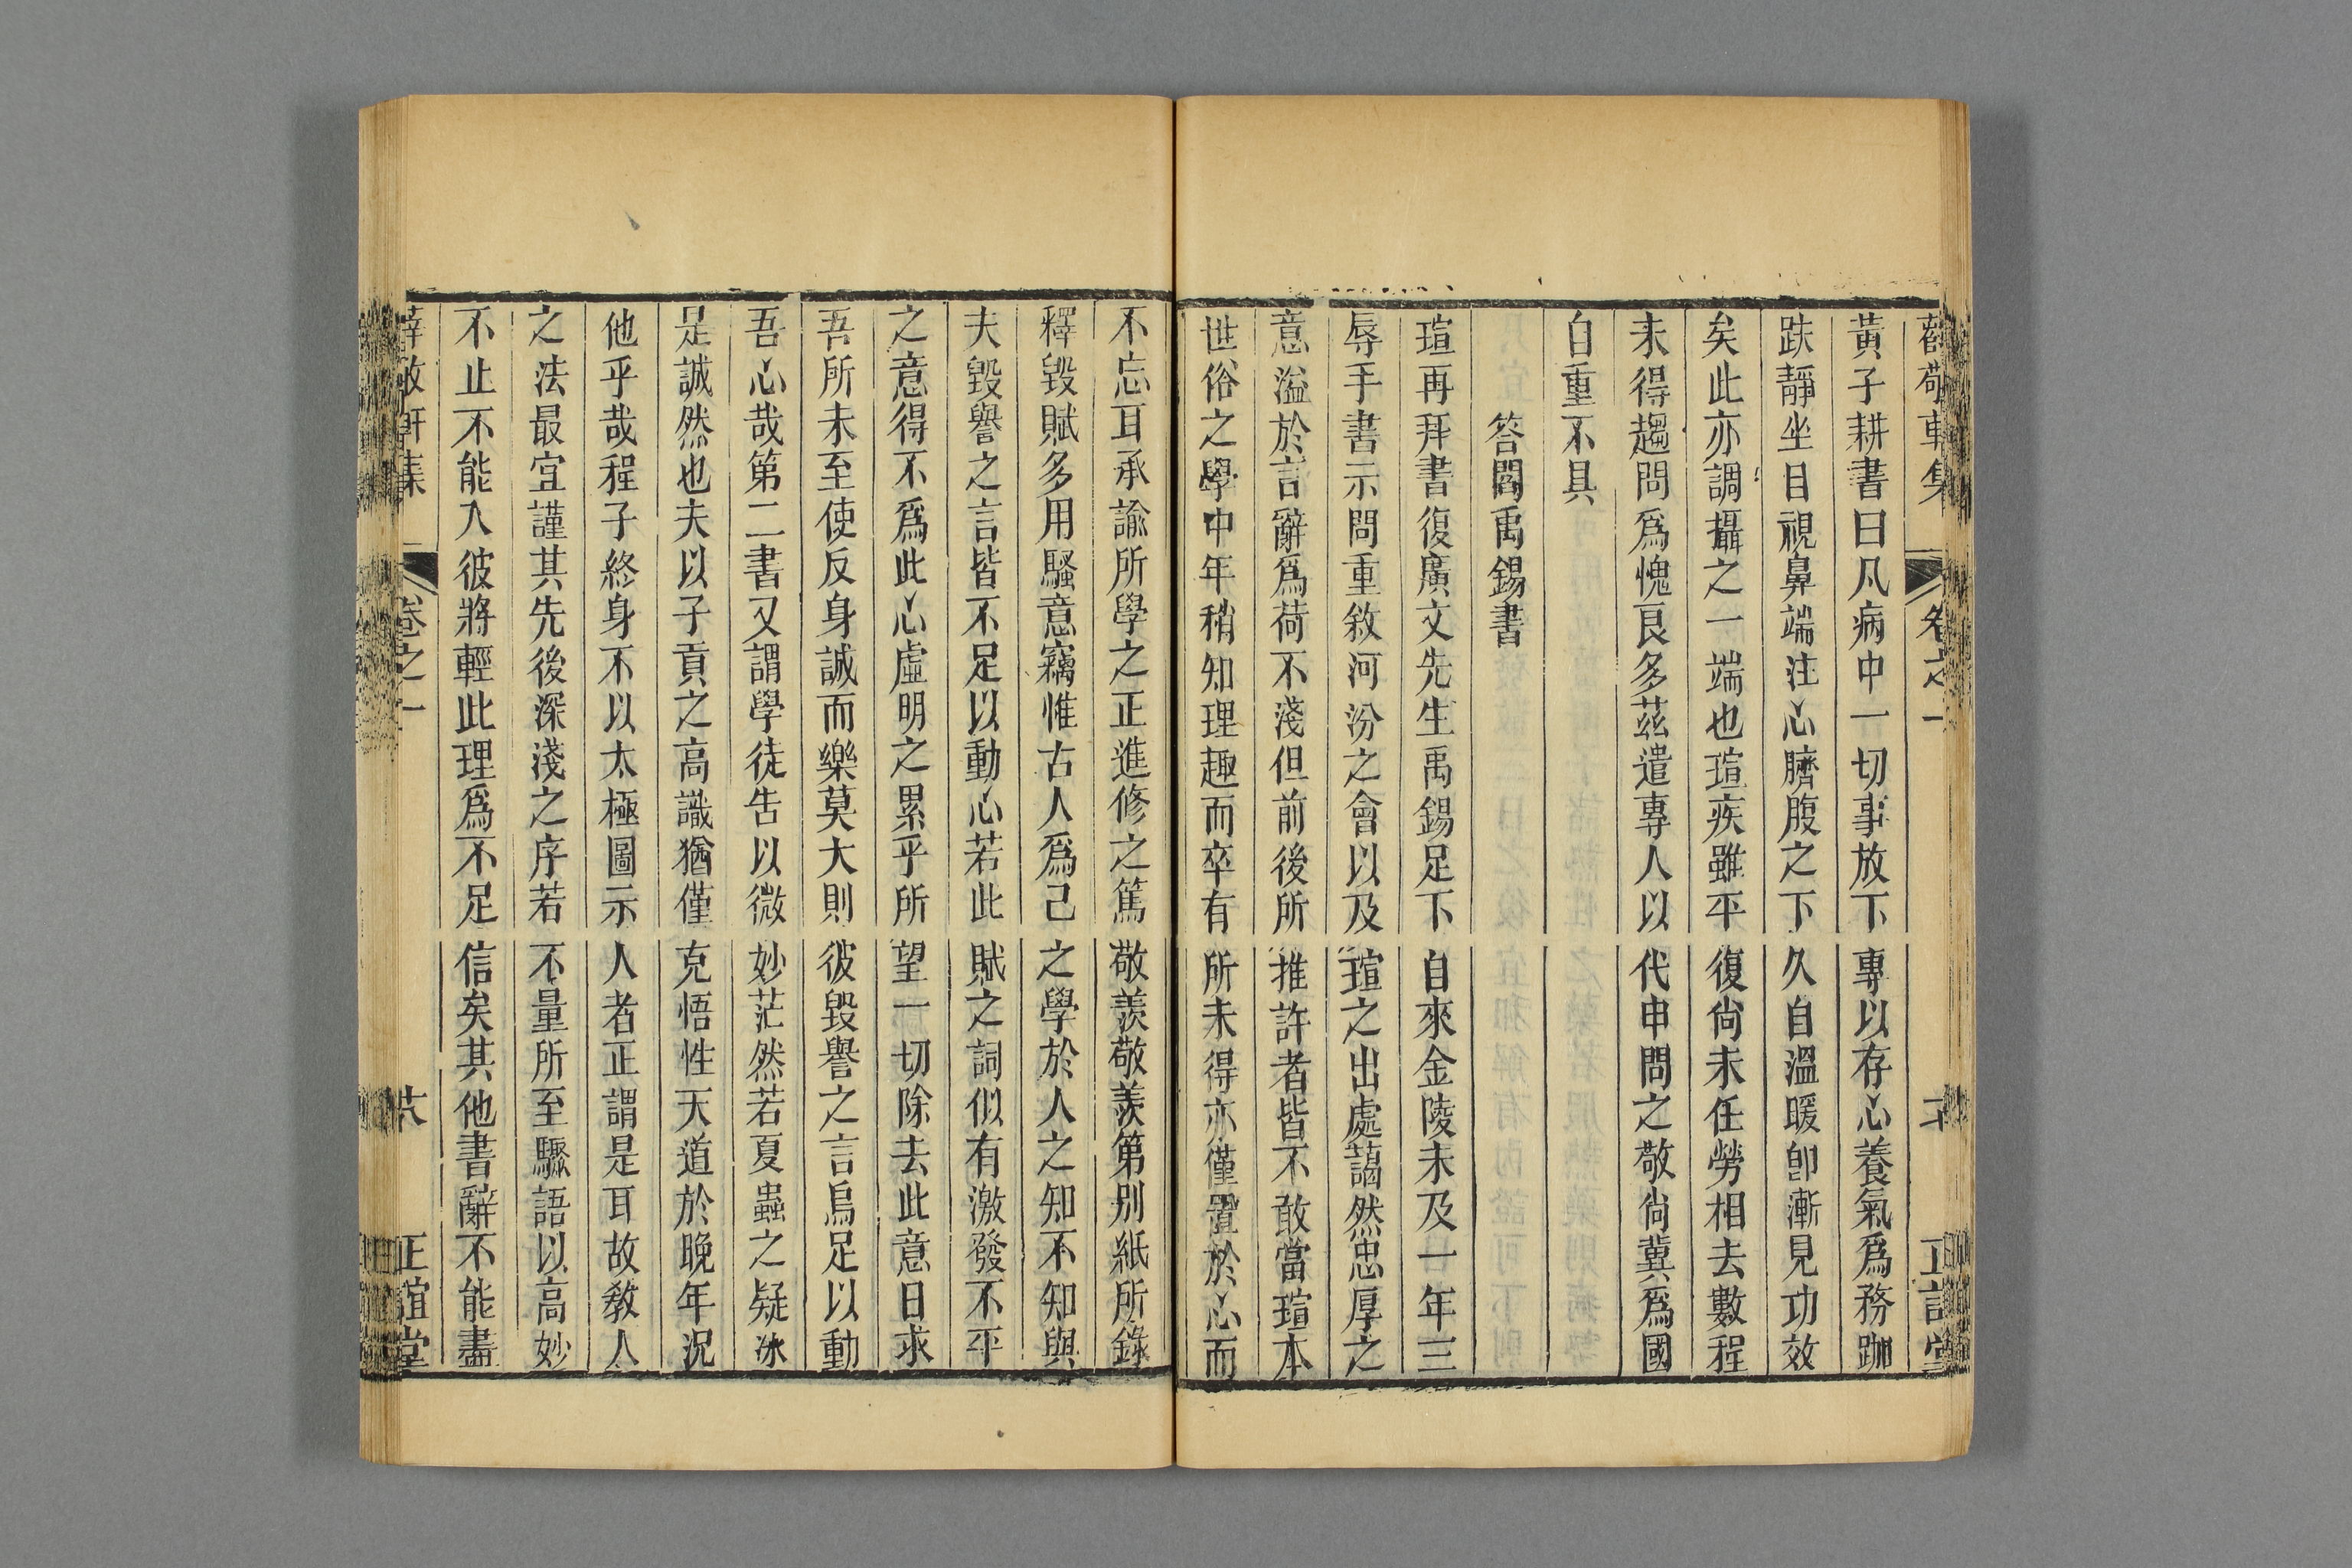 黃子耕書曰凡病中一切事放下專以存心養氣爲務跏
趺靜坐目視鼻端注心臍腹之下久自溫暖卽漸見功效
矣此亦調攝之一端也瑄疾雖平復尙未任勞相去數程
未得趨問爲愧良多茲遣專人以代申問之敬尙冀爲國
自重不具
答閻禹錫書
瑄再拜書復廣文先生禹錫足下自來金陵未及一年三
辱手書示問重敘河汾之會以及瑄之出處藹然忠厚之
意溢於言辭爲荷不淺但前後所推許者皆不敢當瑄本
世俗之學中年稍知理趣而卒有所未得亦僅置於心而
不忘耳承諭所學之正進修之篤敬羨敬羨第别紙所錄
釋毀賦多用騷意竊惟古人爲己之學於人之知不知與
夫毀譽之言皆不足以動心若此賦之詞似有激發不平
之意得不爲此心虛明之累乎所望一切除去此意日求
吾所未至使反身誠而樂莫大則彼毀譽之言烏足以動
吾心哉第二書又謂學徒告以微妙茫然若夏蟲之疑冰
是誠然也夫以子貢之高識猶僅克悟性天道於晚年況
他乎哉程子終身不以太極圖示人者正謂是耳故敎人
之法最宜謹其先後深淺之序若不量所至驟語以高妙
不止不能入彼將輕此理爲不足信矣其他書辭不能盡
薛敬軒集 卷之一 正誼堂